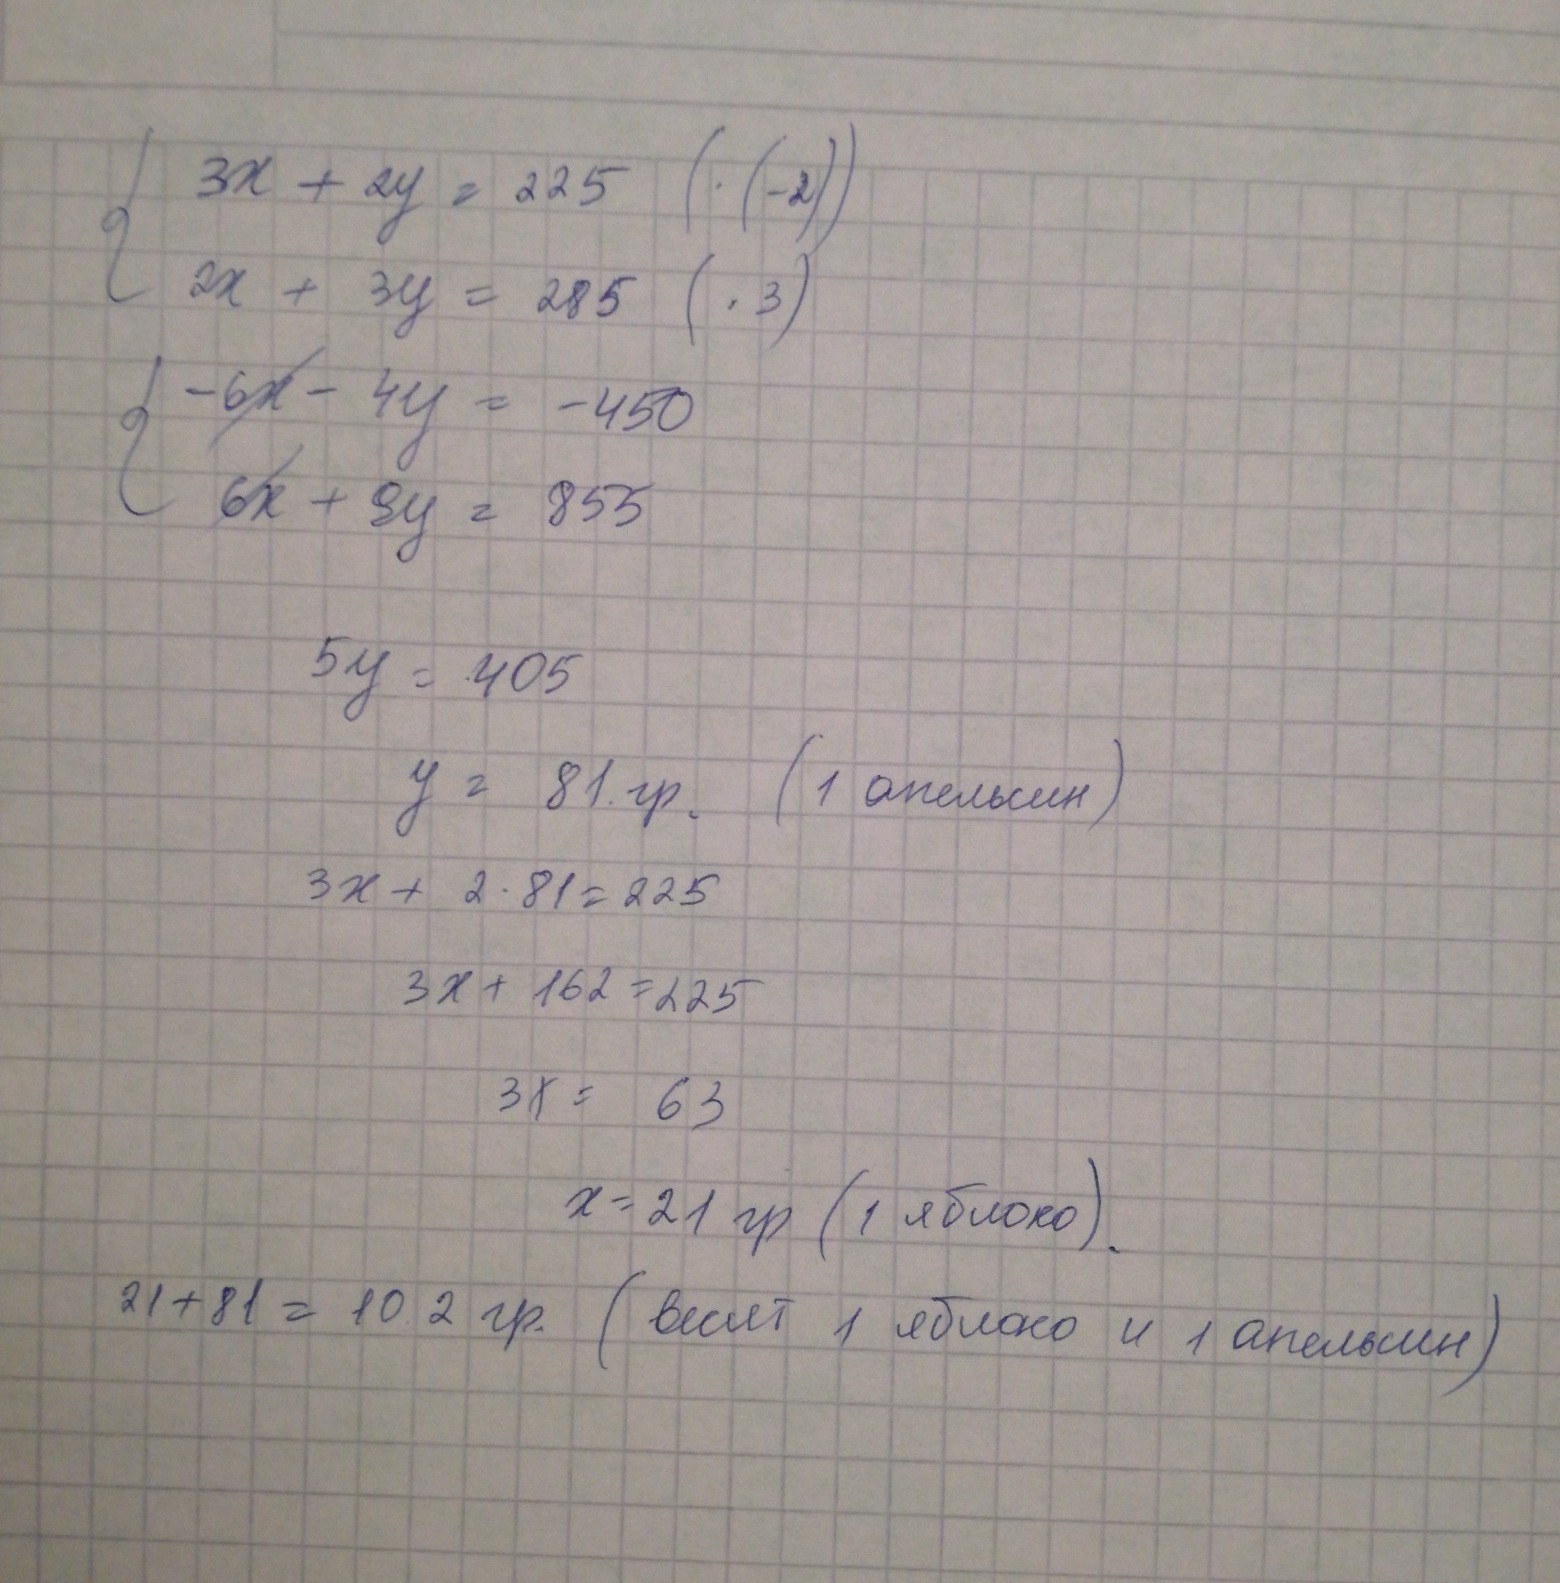 3x + 2y = 225 (· (-2))
2x + 3y = 285 (· 3)
-6x - 4y = -450
6x + 9y = 855
5y = 405
y = 81 гр. (1 апельсин)
3x + 2·81 = 225
3x + 162 = 225
3x = 63
x = 21 гр (1 яблоко).
21+81 = 102 гр. (весят 1 яблоко и 1 апельсин)